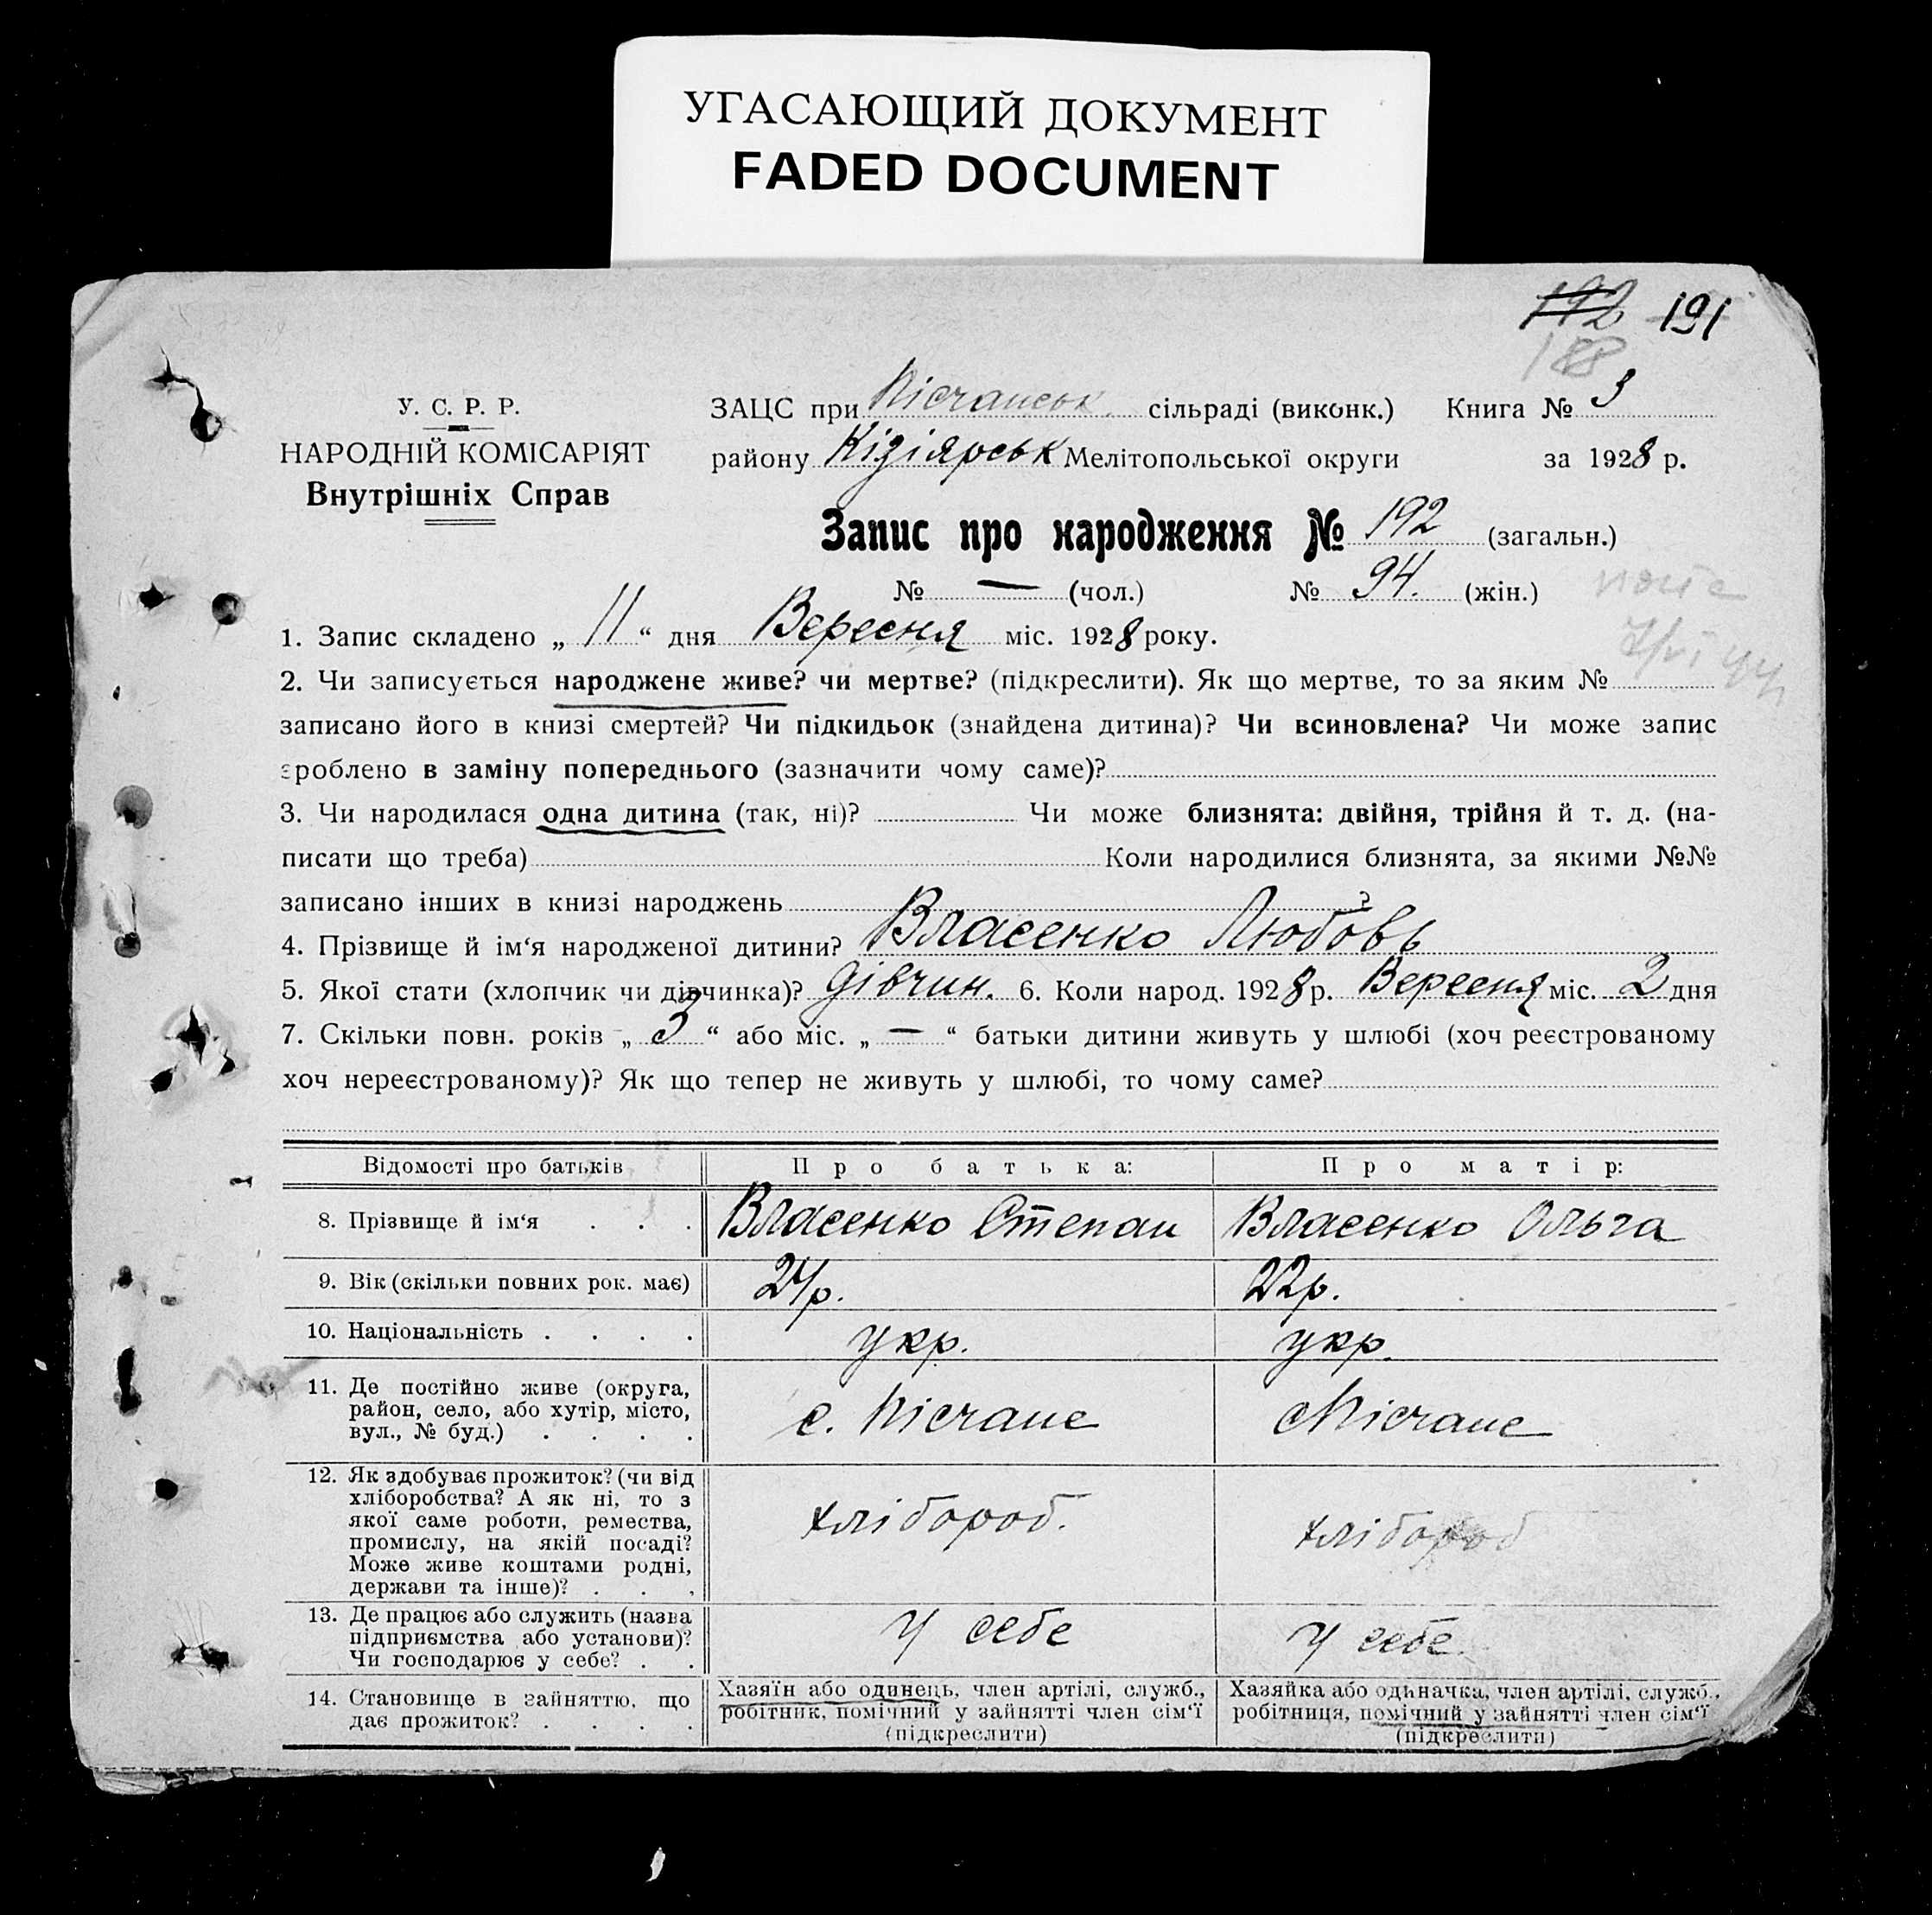 УГАСАЮЩИЙ ДОКУМЕНТ
FADED DOCUMENT
192 191
188
У. С. Р. Р.
НАРОДНІЙ КОМІСАРІЯТ
Внутрішніх Справ
ЗАЦС при Пісчанськ. сільраді (виконк.) Книга № 3
району Кізіярськ Мелітопольської округи за 1928 р.
Запис про народження № 192 (загальн.)
№ — (чол.) № 94. (жін.)
1. Запис складено „ 11 “ дня Вересня міс. 1928 року.
2. Чи записується народжене живе? чи мертве? (підкреслити). Як що мертве, то за яким №
записано його в книзі смертей? Чи підкидьок (знайдена дитина)? Чи всиновлена? Чи може запис
зроблено в заміну попереднього (зазначити чому саме)?
3. Чи народилася одна дитина (так, ні)? Чи може близнята: двійня, трійня й т. д. (на-
писати що треба) Коли народилися близнята, за якими №№
записано інших в книзі народжень ?
4. Прізвище й ім‘я народженої дитини? Власенко Любовь
5. Якої стати (хлопчик чи дівчинка)? дівчин. 6. Коли народ. 1928 р. Вересня міс. 2 дня
7. Скільки повн. років „ 3 “ або міс. „ — “ батьки дитини живуть у шлюбі (хоч реєстрованому
хоч нереєстрованому)? Як що тепер не живуть у шлюбі, то чому саме?
Відомості про батьків Про батька: Про матір:
8. Прізвище й ім‘я . . . Власенко Степан Власенко Ольга
9. Вік (скільки повних рок. має) 24р. 22р.
10. Національність . . . . укр. укр.
11. Де постійно живе (округа,
район, село, або хутір, місто,
вул., № буд.) . . . .
с. Пісчане с Пісчане
12. Як здобуває прожиток? (чи від
хліборобства? А як ні, то з
якої саме роботи, ремества,
промислу, на якій посаді?
Може живе коштами родні,
держави та інше)? . . .
хлібороб. хлібороб
13. Де працює або служить (назва
підприємства або установи)?
Чи господарює у себе? . .
у себе у себе
14. Становище в зайняттю, що
дає прожиток? . . . .
Хазяїн або одинець, член артілі, служб.,
робітник, помічний у зайнятті член сім‘ї
(підкреслити)
Хазяйка або одиначка, член артілі, служб.,
робітниця, помічний у зайнятті член сім‘ї
(підкреслити)